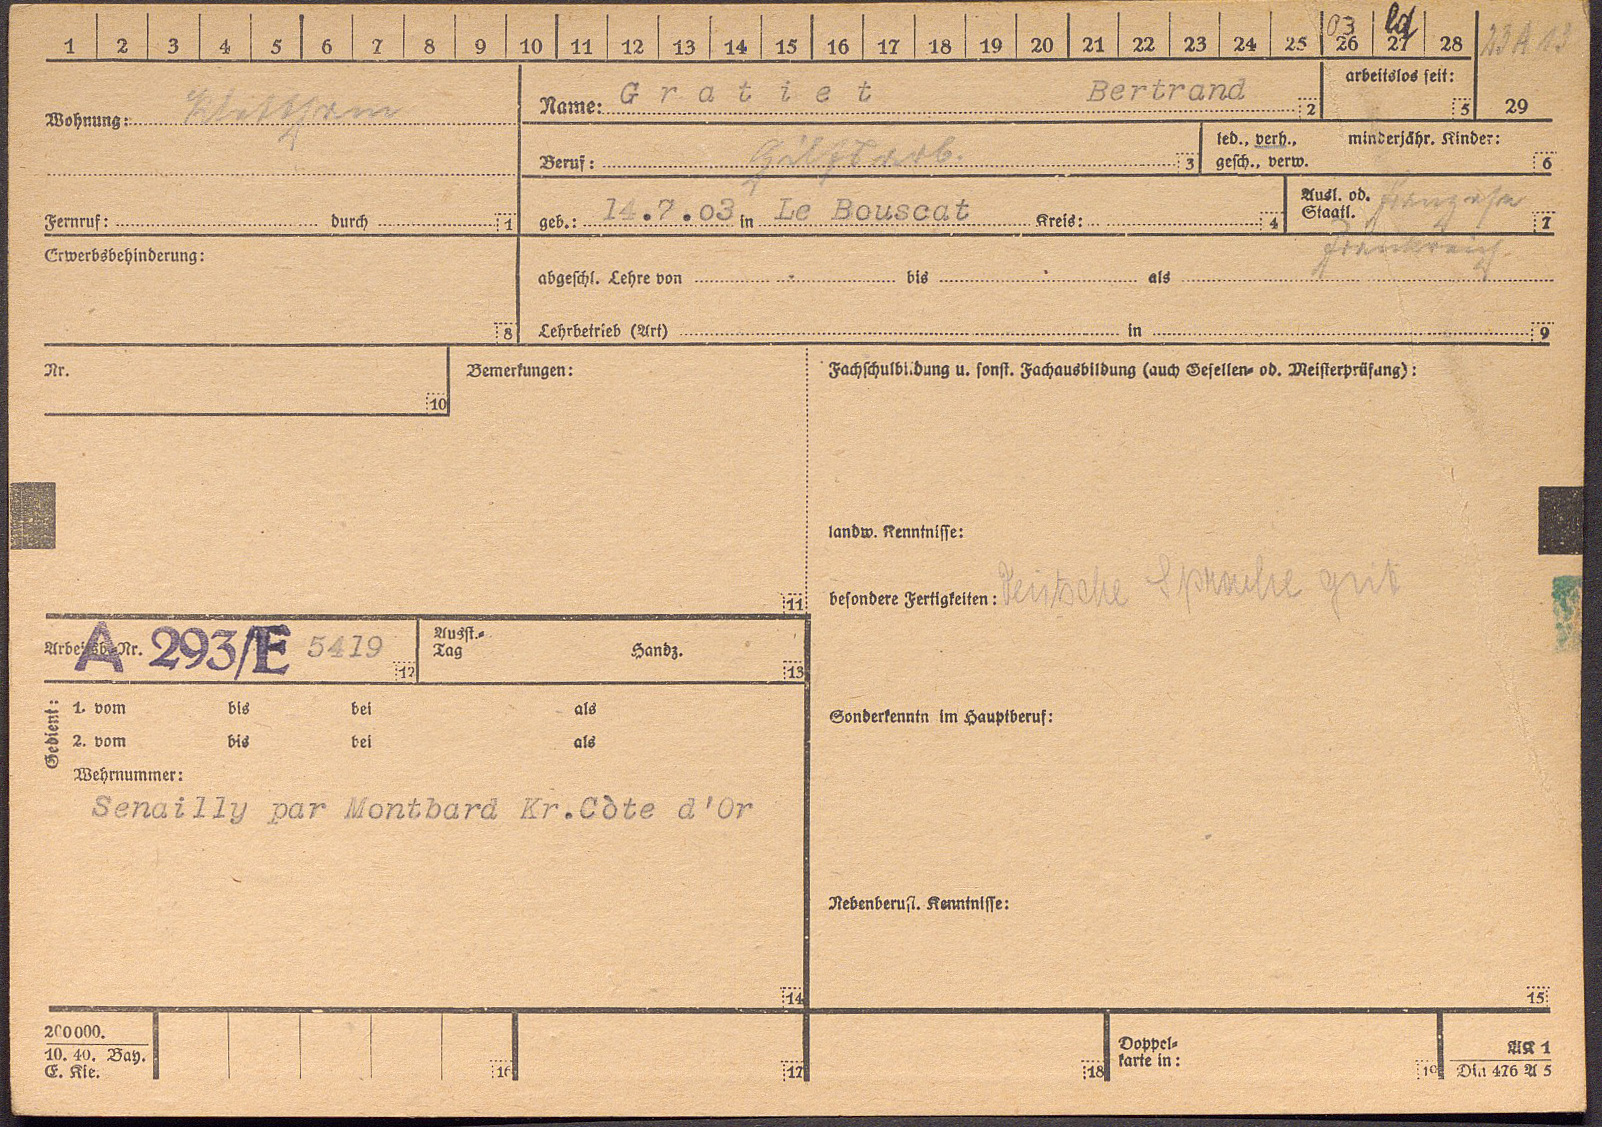 1 2 3 4 5 6 7 8 9 10 11 12 13 14 15 16 17 18 19 20 21 22 23 24 25 26 27 28
03
23 A 13
Wohnung:
Name: Gratiet Bertrand 2
arbeitslos seit: 5
29
Beruf: Hilfsarb. 3
led., verh.,
gesch., verw.
minderjähr. Kinder: 6
Fernruf: durch 1
geb.: 14.7.03 in Le Bouscat Kreis: 4
Ausl. od.
Staatl. Franzose 7
Frankreich.
Erwerbsbehinderung: 8
abgeschl. Lehre von bis als
Lehrbetrieb (Art) in 9
Nr. 10
Bemerkungen: 11
Fachschulbildung u. sonst. Fachausbildung (auch Gesellen- od. Meisterprüfung):
landw. Kenntnisse:
besondere Fertigkeiten: Deutsche Sprache gut
Arbeitsb.-Nr. A 293/E 5419 12
Ausst.-
Tag Handz. 13
Gedient:
1. vom bis bei als
2. vom bis bei als
Wehrnummer:
Senailly par Montbard Kr.Còte d'Or
14
Sonderkenntn im Hauptberuf:
Nebenberufl. Kenntnisse:
15
200000.
10. 40. Bay.
E. Kie.
16 17 18
Doppel-
karte in: 19
AK 1
Din 476 A 5